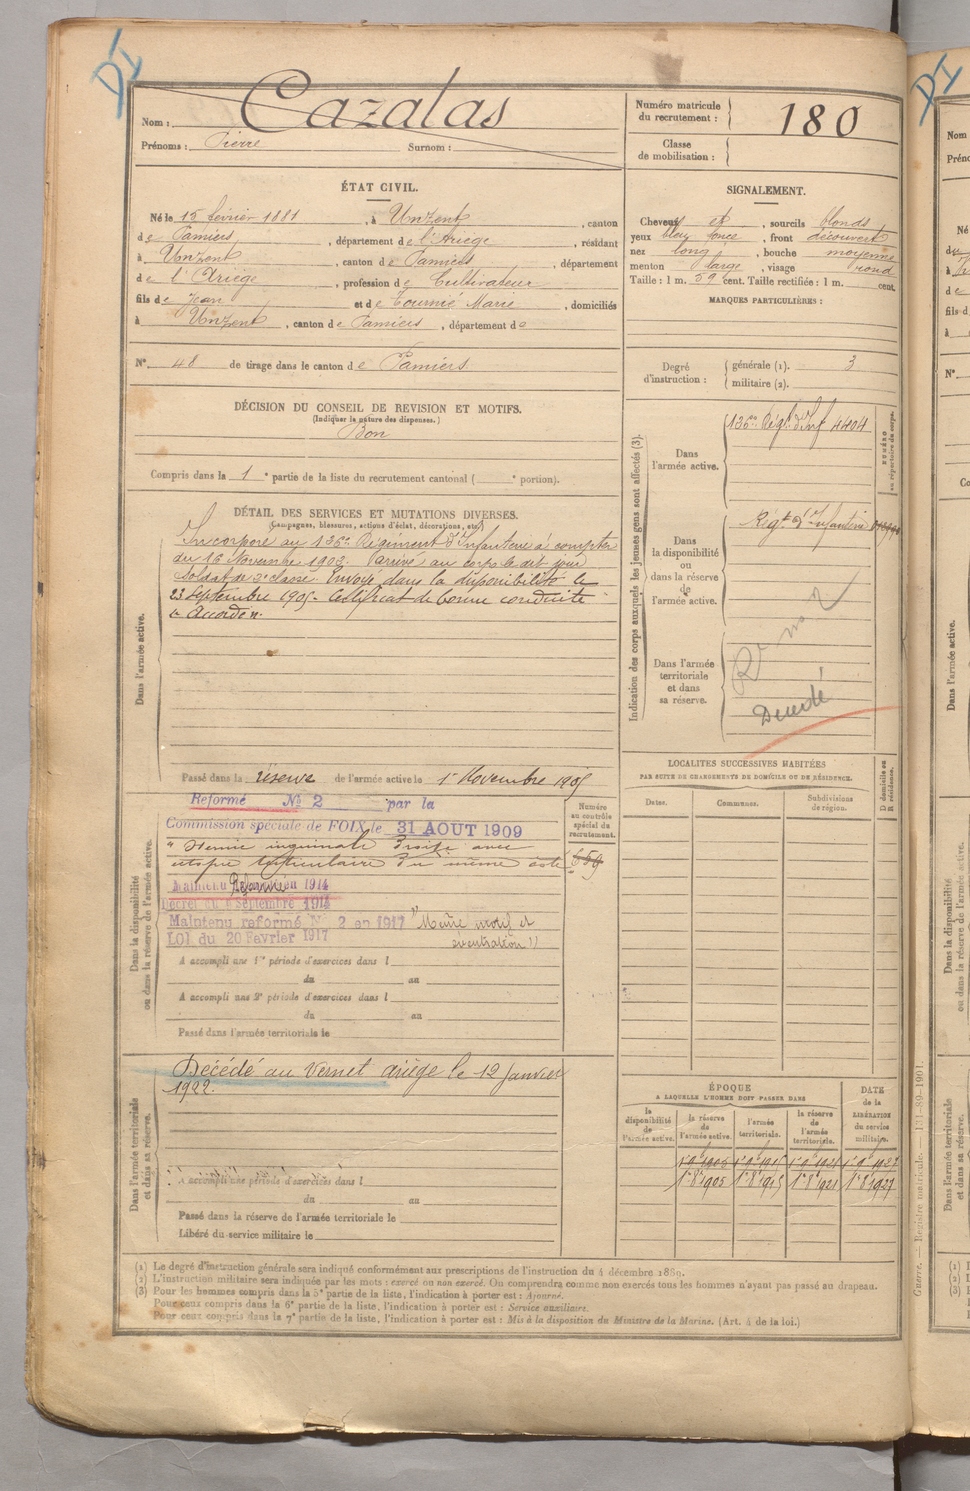 DI
Nom : Cazalas
Prénoms : Pierre Surnom :
Numéro matricule du recrutement : 180
Classe de mobilisation :
ÉTAT CIVIL.
Né le 15 février 1881, à Unzent, canton
de Pamiers, département de l'Ariège, résidant
à Unzent, canton de Pamiers, département
de l'Ariège, profession de Cultivateur
fils de Jean et de Tournié Marie, domiciliés
à Unzent, canton de Pamiers, département de
N° 48 de tirage dans le canton de Pamiers
SIGNALEMENT.
Cheveux et, sourcils blonds
yeux bleu foncé, front découvert
nez long, bouche moyenne
menton large, visage rond
Taille : 1 m. 59 cent. Taille rectifiée : 1 m. cent.
MARQUES PARTICULIÈRES :
Degré d'instruction : générale (1). 3
militaire (2).
DÉCISION DU CONSEIL DE REVISION ET MOTIFS.
(Indiquer la nature des dispenses.)
Bon
Compris dans la 1e partie de la liste du recrutement cantonal ( e portion).
DÉTAIL DES SERVICES ET MUTATIONS DIVERSES.
Campagnes, blessures, actions d'éclat, décorations, etc.
Dans l'armée active.
Incorporé au 136e Régiment d'Infanterie à compter
du 16 Novembre 1902. Arrivé au corps le dit jour
soldat de 2e classe. Envoyé dans la disponibilité le
23 Septembre 1905. Certificat de bonne conduite
Accordé.
Passé dans la réserve de l'armée active le 1 Novembre 1905
Indication des corps auxquels les jeunes gens sont affectés (3).
Dans l'armée active.
136e Régt d'Inf 4404
NUMÉRO au répertoire du corps.
Dans la disponibilité ou dans la réserve de l'armée active.
Régt d'Infanterie
Dans l'armée territoriale et dans sa réserve.
Décédé
Dans la disponibilité ou dans la réserve de l'armée active.
Réformé No 2 par la
Commission spéciale de FOIX le 31 AOUT 1909
"Hernie inguinale droite avec
testiculaire du même côté
Numéro au contrôle spécial du recrutement.
659
Maintenu Réformé en 1914
Décret du Septembre 1914
Maintenu reformé N° 2 en 1917 "Même motif et
LOI du 20 Fevrier 1917 éventration"
A accompli une 1re période d'exercices dans l
du au
A accompli une 2e période d'exercices dans l
du au
Passé dans l'armée territoriale le
LOCALITÉS SUCCESSIVES HABITÉES
PAR SUITE DE CHANGEMENTS DE DOMICILE OU DE RÉSIDENCE.
Dates. Communes. Subdivisions de région. D domicile ou R résidence.
Dans l'armée territoriale et dans sa réserve.
Décédé au Vernet ariège le 12 Janvier
1922.
A accompli une période d'exercices dans l
du au
Passé dans la réserve de l'armée territoriale le
Libéré du service militaire le
ÉPOQUE
A LAQUELLE L'HOMME DOIT PASSER DANS
DATE de la LIBÉRATION du service militaire.
la disponibilité de l'armée active. la réserve de l'armée active. l'armée territoriale. la réserve de l'armée territoriale.
1er 8 1905 1er 8 1915 1er 8 1921 1er 8 1927
(1) Le degré d'instruction générale sera indiqué conformément aux prescriptions de l'instruction du 4 décembre 1889.
(2) L'instruction militaire sera indiquée par les mots : exercé ou non exercé. On comprendra comme non exercés tous les hommes n'ayant pas passé au drapeau.
(3) Pour les hommes compris dans la 5e partie de la liste, l'indication à porter est : Ajourné.
Pour ceux compris dans la 6e partie de la liste, l'indication à porter est : Service auxiliaire.
Pour ceux compris dans la 7e partie de la liste, l'indication à porter est : Mis à la disposition du Ministre de la Marine. (Art. 4 de la loi.)
Guerre. — Registre matricule. — 131-89-1901.
DI